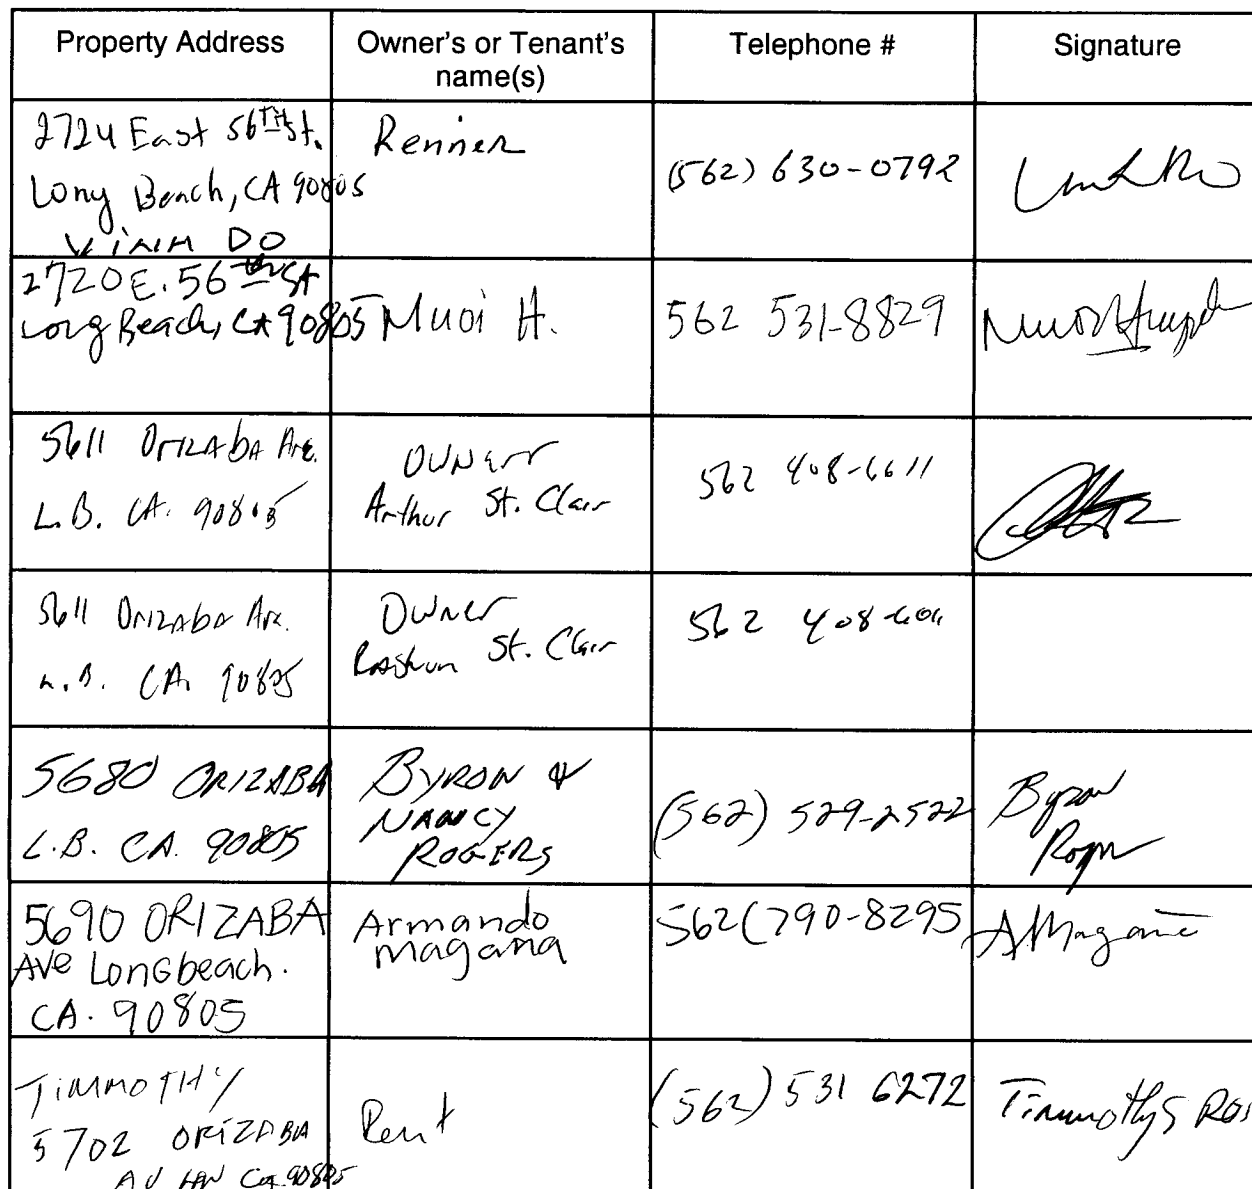 Property Address
Owner's or Tenant's
name(s)
Telephone #
Signature
2724 East 56TH St.
Long Beach, CA 90805
Renner
(562) 630-0792
VINH DO
2720 E. 56th St
Long Beach, CA 90805
Muoi H.
562 531-8829
Muoi
5611 Orizaba Ave.
L.B. CA. 90805
Owner
Arthur St. Clair
562 408-6611
5611 Orizaba Ave.
L.B. CA. 90805
Owner
St. Clair
562 408-
5680 ORIZABA
L.B. CA. 90805
BYRON &
NANCY
ROGERS
(562) 529-2522
Byron
5690 ORIZABA
AVE LonGbeach.
CA. 90805
Armando
magana
562(790-8295
AMagana
TiMMOTHY
5702 ORIZABA
AV CA 90805
Rent
(562) 531 6272
Timmothy S Ros